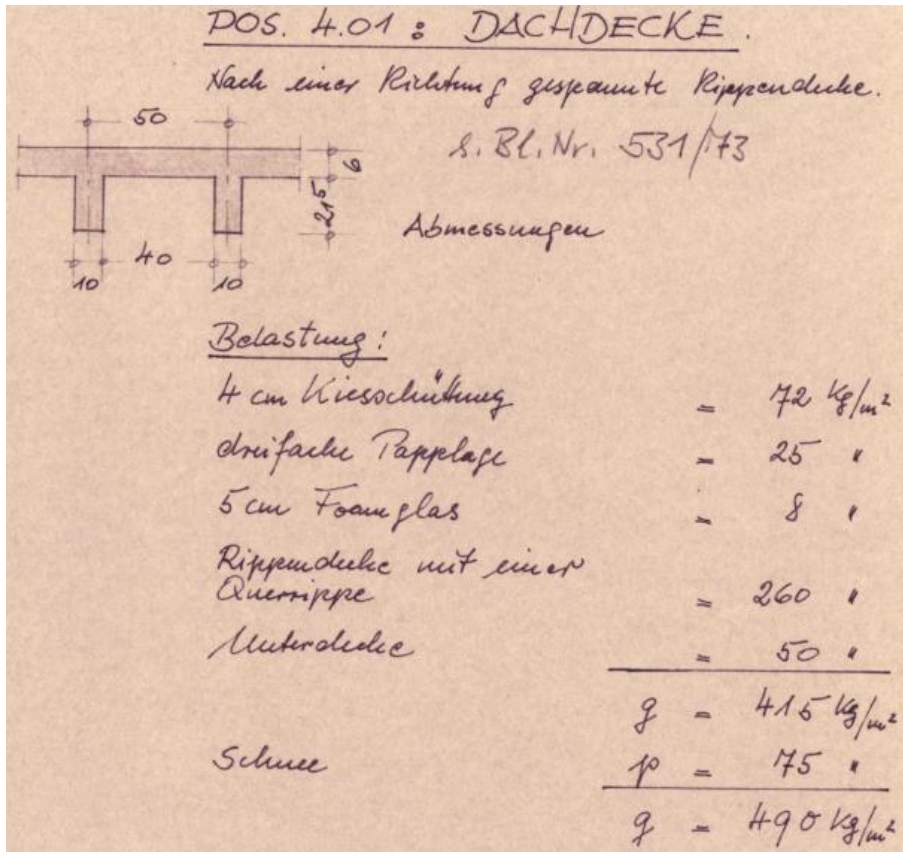 POS. 4.01 : DACHDECKE.
Nach einer Richtung gespannte Rippendecke.
s. Bl. Nr. 531/73
50
6
21⁵
Abmessungen
40
10 10
Belastung:
4 cm Kiesschüttung = 72 kg/m²
dreifache Papplage = 25 "
5 cm Foamglas = 8 "
Rippendecke mit einer
Querrippe = 260 "
Unterdecke = 50 "
g = 415 kg/m²
Schnee p = 75 "
q = 490 kg/m²